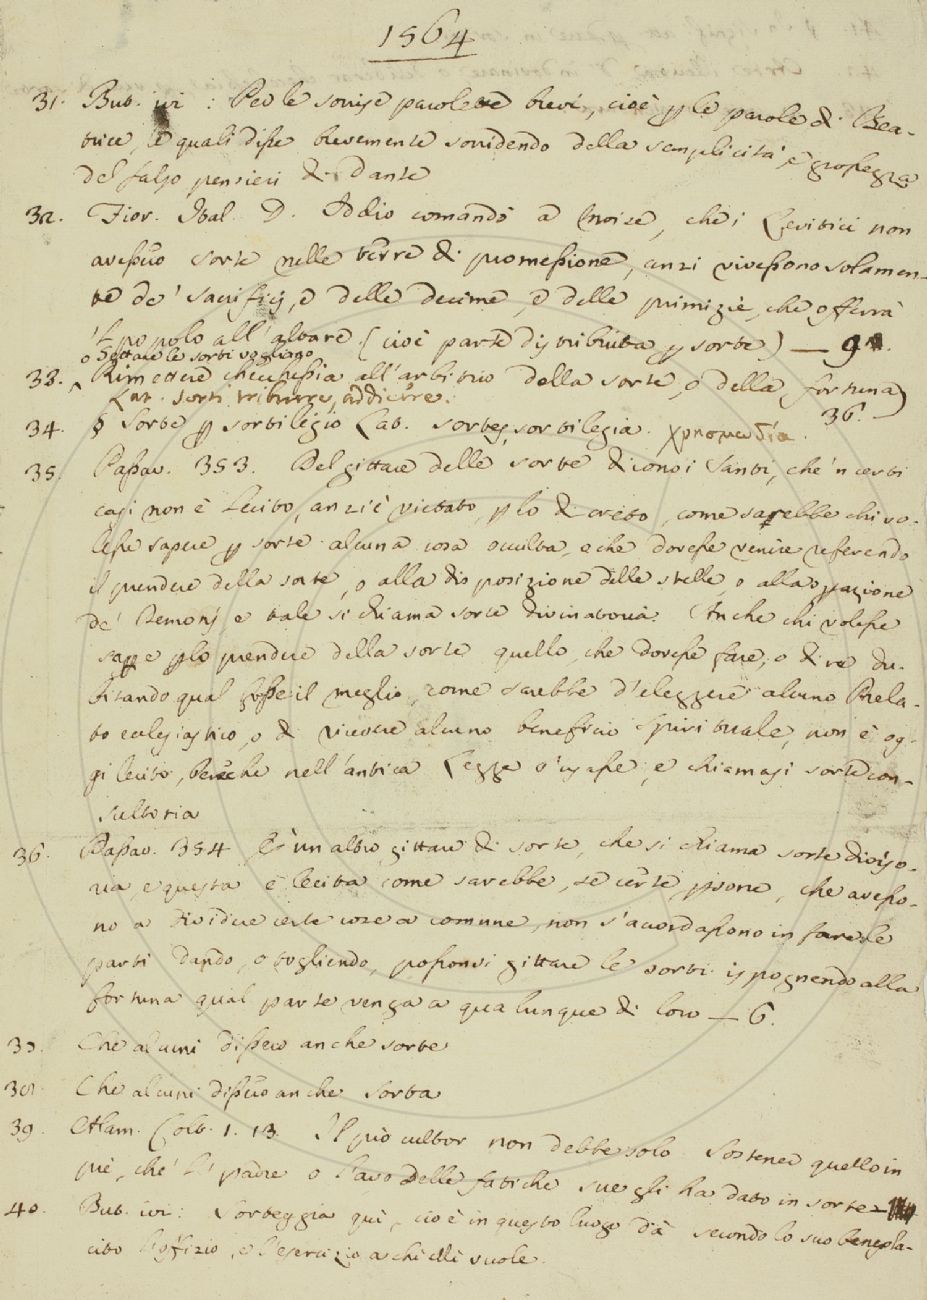 1564
31. But. ivi : Per le sorrise parolette brevi, cioè p le parole di Bea-
trice, le quali disse brevemente sorridendo della semplicità, e grossezza
de' falsi pensieri di Dante
32. Fior. Ital. D. Addio comandò a Moisè, che i Levitici non
avessero sorte nelle terre di promessione, anzi vivessono solamen-
te de' sacrifizj, e delle decime, e delle primizie, che offerrà
'l popolo all'altare (cioè parte distribuita p sorte) — 9.
o Gittare le sorti vogliano
33. Rimettere checchessia all'arbitrio della sorte, o della fortuna)
Lat. sorti tribuere, addicere.
36.
34. § Sorte p sortilegio Lat. sortes, sortilegia. χρησμωδία.
35. Passav. 353. Del gittare delle sorte dicono i Santi, che 'n certi
casi non è lecito, anzi è vietato, p lo dicreto, come sarebbe chi vo-
lesse sapere p sorte alcuna cosa occulta, e che dovesse venire referendo
il prendere della sorte, o alla disposizione delle stelle, o alla opazione
de' Demonj, e tale si chiama sorte divinatoria. Anche chi volesse
sape p lo prendere della sorte quello, che dovesse fare, o dire du-
bitando qual fosse il meglio, come sarebbe d'eleggere alcuno Prela-
to eclesiastico, o di ricevere alcuno beneficio spirituale, non è og-
gi lecito, benche nell'antica Legge s'usasse, e chiamasi sorte con-
sultoria
36. Passav. 354 E' un altro gittare di sorte, che si chiama sorte diviso-
ria, e questa è lecita come sarebbe, se certe psone, che avesso-
no a dividere certe cose a comune, non s'accordassono in fare le
parti dando, o togliendo, possonsi gittare le sorti ispognendo alla
fortuna qual parte venga a qualunque di loro — 6.
Che alcuni dissero anche sorte
Che alcuni dissero anche sorta
39. Alam. Colt. 1. 13. Il pio cultor non debbe solo sostener quello in
piè, che 'l padre o l'avo delle fatiche sue gli ha dato in sorte
40. But. ivi : Sorteggia quì, cioè in questo luogo dà secondo lo suo benepla-
cito l'offizio, e l'esercizio a chi elli vuole.